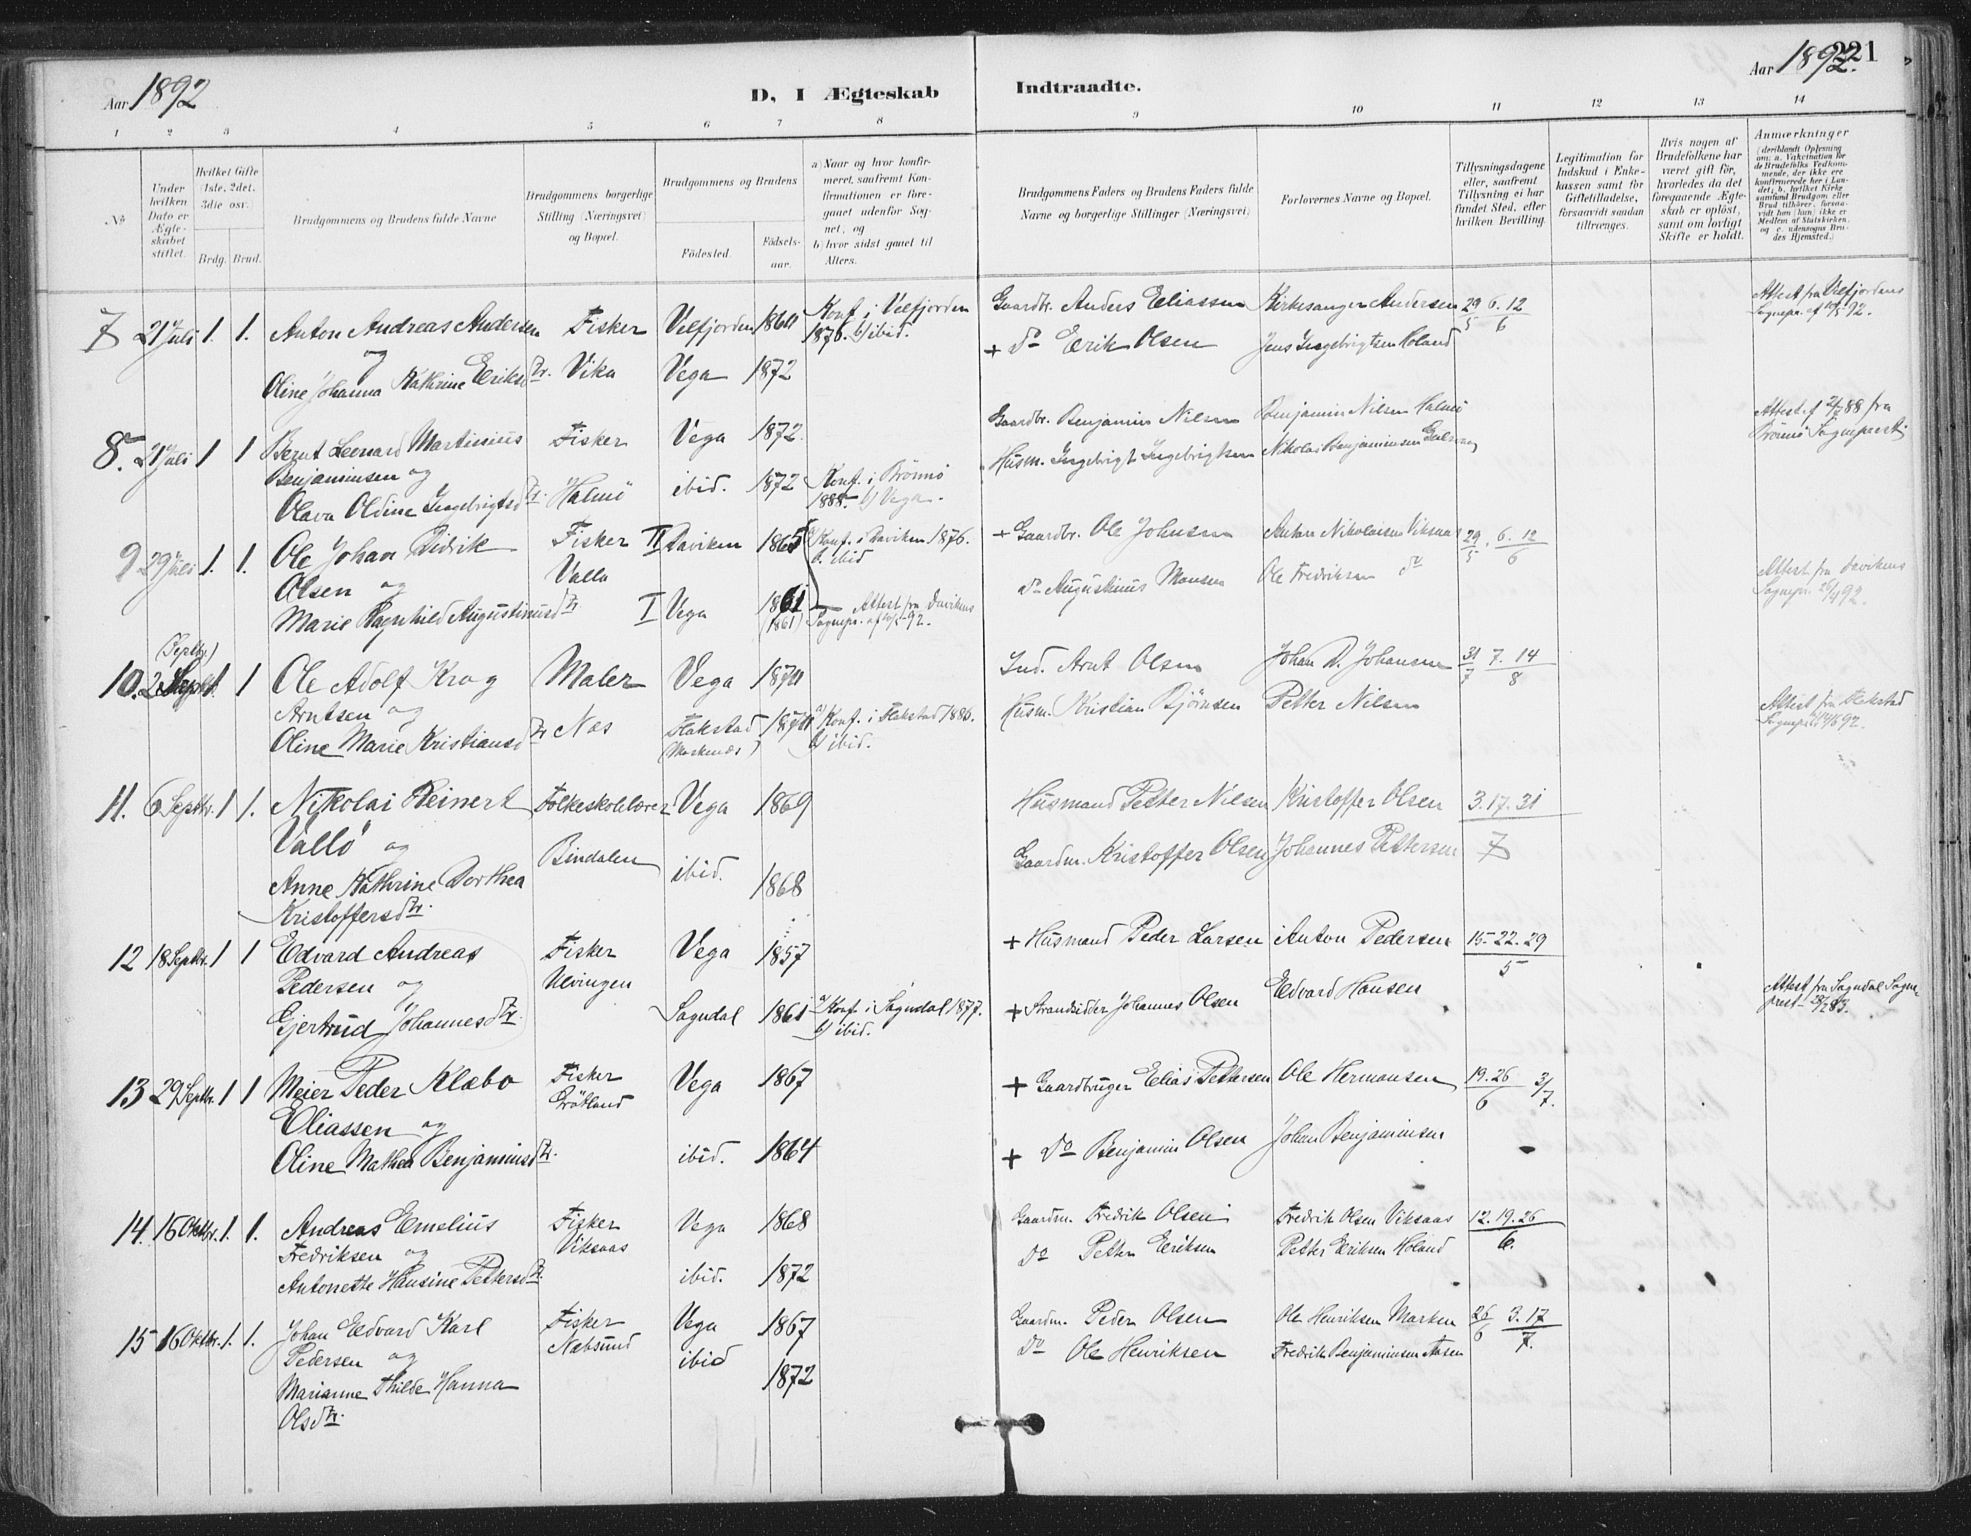 Aar 1892
D, I Ægteskab
Indtraadte.
Aar 1892.
221
1 2 3 4 5 6 7 8 9 10 11 12 13 14
No.
Under hvilken Dato er Ægteskabet stiftet.
Hvilket Gifte (1ste, 2det, 3die osv.)
Brdg. Brud.
Brudgommens og Brudens fulde Navne
Brudgommens borgerlige Stilling (Næringsvei) og Bopæl.
Brudgommens og Brudens
Födested. Födsels-aar.
a) Naar og hvor konfirmeret, saafremt Konfirmationen er foregaaet udenfor Sognet, og
b) hvor sidst gaaet til Alters.
Brudgommens Faders og Brudens Faders fulde Navne og borgerlige Stillinger (Næringsvei)
Forlovernes Navne og Bopæl.
Tillysningsdagene eller, saafremt Tillysning ei har fundet Sted, efter hvilken Bevilling.
Legitimation for Indskud i Enkekassen samt for Giftetilladelse, forsaavidt saadan tiltrænges.
Hvis nogen af Brudefolkene har været gift før, hvorledes da det foregaaende Ægteskab er oplöst, samt om lovligt Skifte er holdt.
Anmærkninger
7 21 Juli 1. 1. Anton Andreas Andersen Fisker Velfjorden Konf. i Velfjorden Gaardbr. Anders Eliassen Kirkesanger Andersen 29/5 6. 12/6 Attest fra Velfjordens
og 1876. b) ibid. + do Erik Olsen Jens Ingebrigtsen Holand
Oline Johanna Kathrine Eriksdtr. Vika Vega 1872
8. 21 Juli 1 1 Bernt Leonard Martinius Fisker Vega 1872. Gaardbr. Benjamin Nilsen Benjamin Nilsen Halmö
Benjaminsen og Husm. Ingebrigt Ingebrigtsen Nikolai Benjaminsen
Olava Oldine Ingebrigtsdtr. Halmö ibid. 1872 Konf. i Brönnö
1888. b) Vega.
9 29 Juli 1. 1. Ole Johan Didrik Fisker II Daviken 1865 Konf. i Daviken 1876. + Gaardbr. Ole Johnsen Anton Nikolaisen Viksaas 29/5. 6. 12/6
Olsen og Valla b. ibid do Augustinus Monsen Ole Fredriksen do Attest fra Davikens
Marie Ragnhild Augustinusdtr I Vega 1861 (1861) Attest fra Davikens
10. 2 Septbr. 1 1 Ole Adolf Krog Maler Vega Ind. Arnt Olsen Johan D. Johansen 31/7 7. 14/8
Arntsen og Husm. Kristian Björnsen Petter Nilsen Attest fra Flakstad
Oline Marie Kristiansdtr Nes Flakstad a) Konf. i Flakstad 1886.
b) ibid.
11. 6 Septbr. 1 1. Nikolai Reinert Folkeskolelærer Vega 1869 Husmand Petter Nilsen Kristoffer Olsen 3. 17. 31
Vallö og Bindalen Gaardm. Kristoffer Olsen Johannes Pettersen 7
Anne Kathrine Dorthea ibid. 1868
Kristoffersdtr.
12 18 Septbr. 1 1 Edvard Andreas Fisker Vega 1857 + Husmand Peder Larsen Anton Pedersen 15. 22. 29
Pedersen og Ulvingen 5
Gjertrud Johannesdtr. Sogndal 1861 a) Konf. i Sogndal 1877. + Strandsidder Johannes Olsen Edvard Hansen Attest fra Sogndal Sogne
b) ibid.
13 29 Septbr. 1 1 Meier Peder Klæbo Fisker Vega 1867 + Gaardbruger Elias Pettersen Ole Hermansen 19. 26/6 3/7.
Eliassen og Grötland
Oline Mathea Benjaminsdtr. ibid. 1864 + Do Benjamin Olsen Johan Benjaminsen
14. 16 Oktbr. 1. 1. Andreas Emelius Fisker Vega 1868 Gaardm. Fredrik Olsen Fredrik Olsen Viksaas 12. 19. 26
Fredriksen og Viksaas Do Petter Eriksen Petter Eriksen Holand 6.
Antonette Hansine Pettersdtr. ibid. 1872
15 16 Oktbr. 1. 1. Johan Edvard Karl Fisker Vega 1867 Gaardm. Peder Olsen Ole Henriksen Marken 26/6 3. 17/7.
Pedersen og ibid Do Ole Henriksen Fredrik Benjaminsen
Marianne Thilde Hanna 1872
Olsdtr.